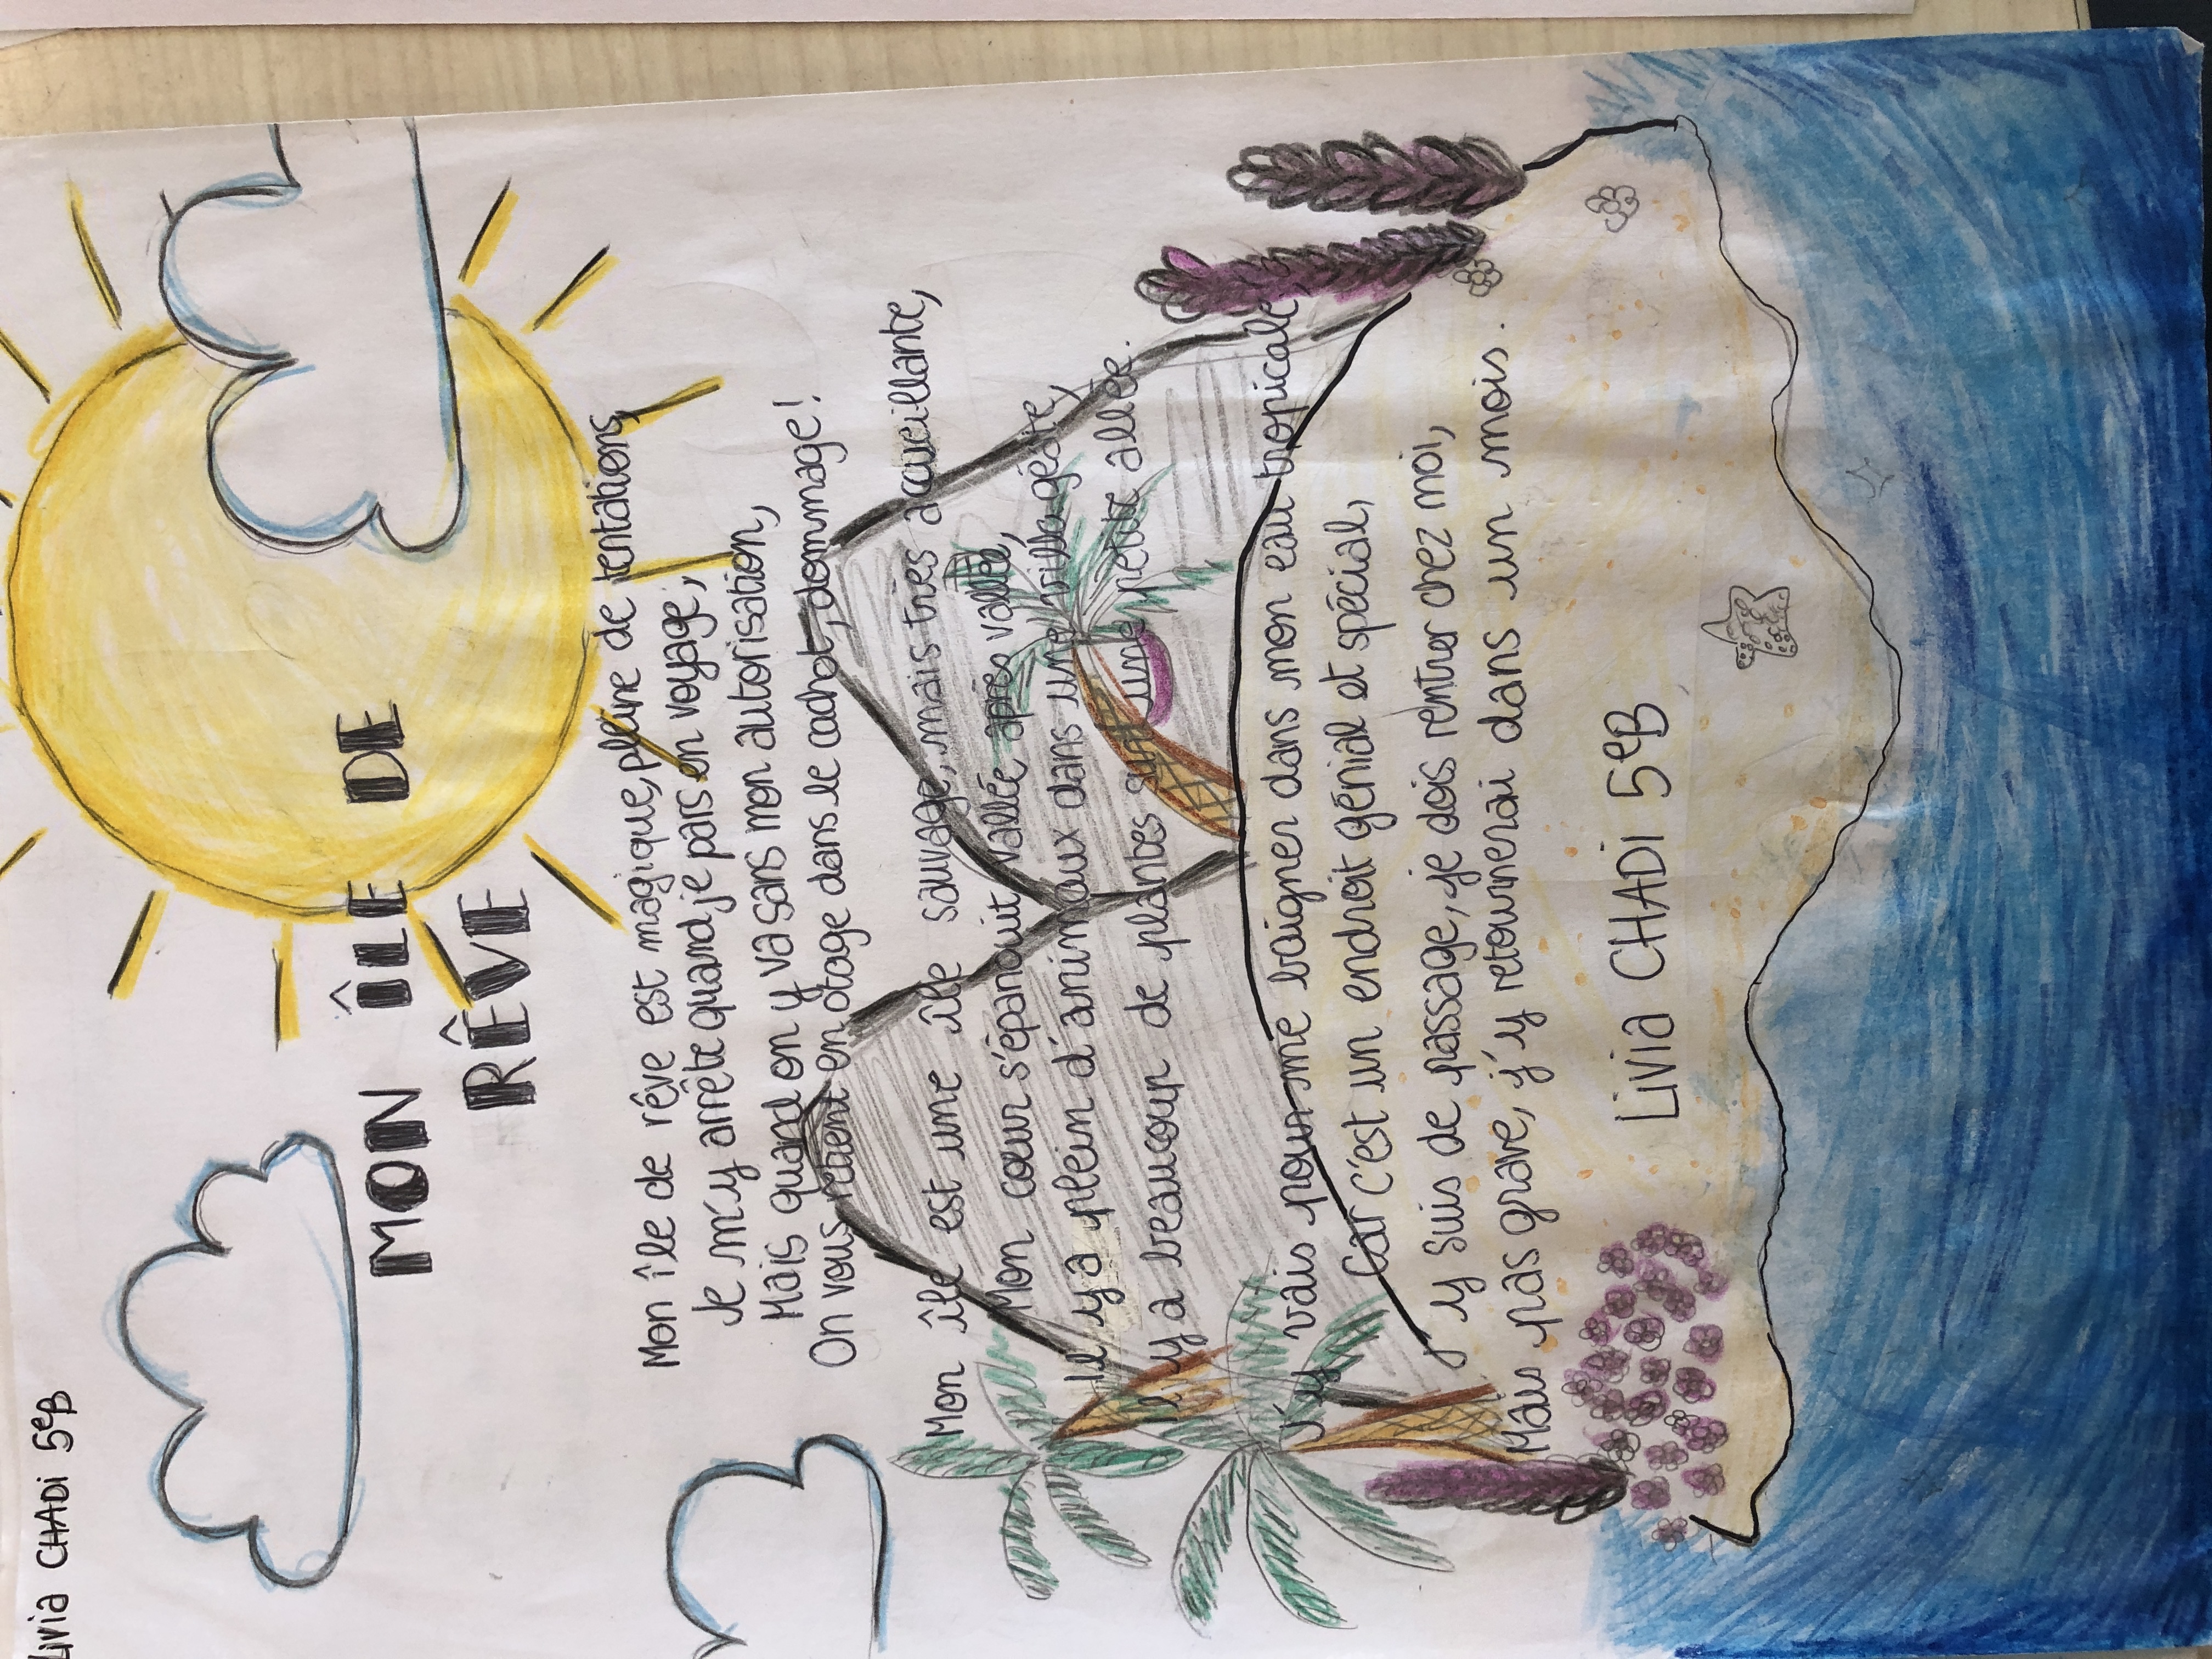 Livia CHADi 5eB
MON ÎLE DE
RÊVE
Mon île de rêve est magique, pleine de tentations,
Je m'y arrête quand je pars en voyage,
Mais quand on y va sans mon autorisation,
On vous retient en otage dans le cachot, dommage!
Mon île est une île sauvage, mais très accueillante,
Mon cœur s'épanouit vallée après vallée,
Il y a plein d'animaux dans une villa géante,
Il y a beaucoup de plantes sur une petite allée.
J'y vais pour me baigner dans mon eau tropicale,
Car c'est un endroit génial et spécial,
J'y suis de passage, je dois rentrer chez moi,
Mais pas grave, j'y retournerai dans un mois.
Livia CHADi 5eB